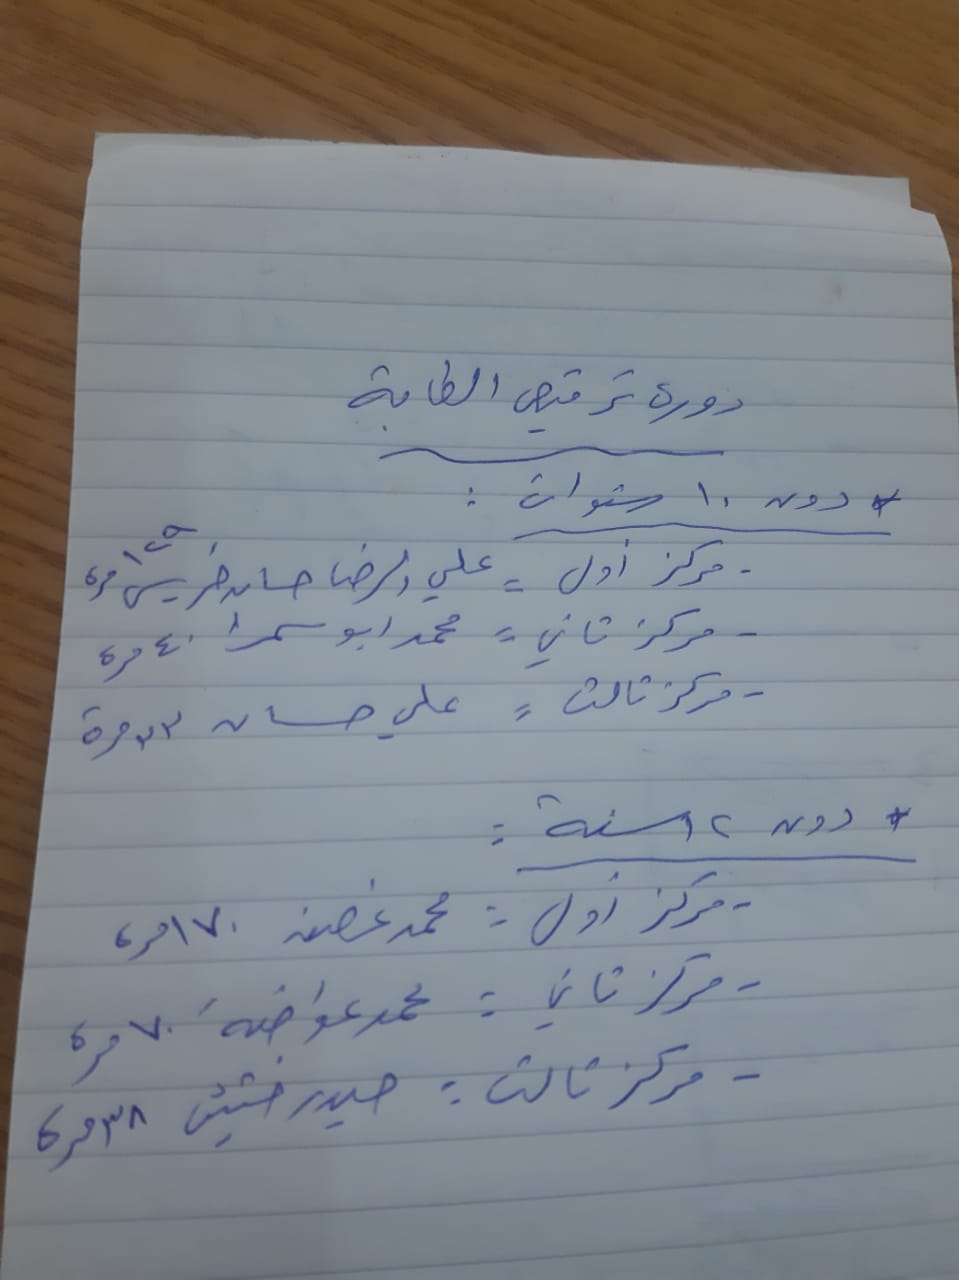 دورة ترقيص الطابة
* دون ١٠ سنوات :
- مركز أول = علي الرضا حسان خريس مرة
- مركز ثاني = محمد ابو سمرا ٤٠ مرة
- مركز ثالث = علي حسان ٣٣ مرة
* دون ١٢ سنة :
- مركز أول = محمد غصن ١٧٠ مرة
- مركز ثاني = محمد عواضة ٧٠ مرة
- مركز ثالث = حيدر حشيش ٣٨ مرة